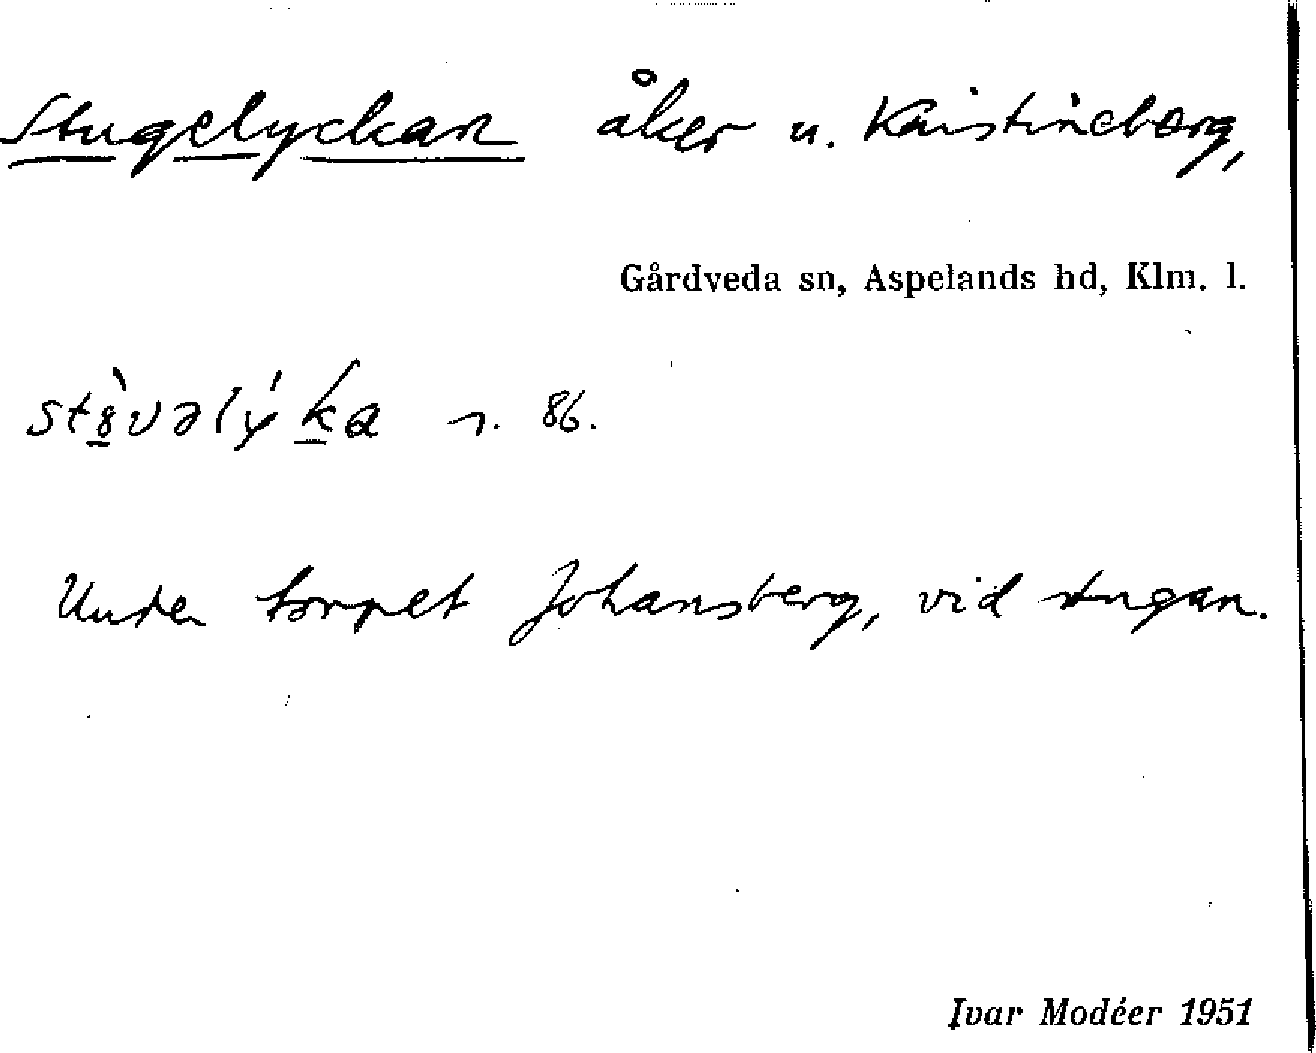 Stugelyckan åker u. Kristineberg,
Gårdveda sn, Aspelands hd, Klm. l.
86.
Under torpet Johansberg, vid stugan.
Ivar Modéer 1951